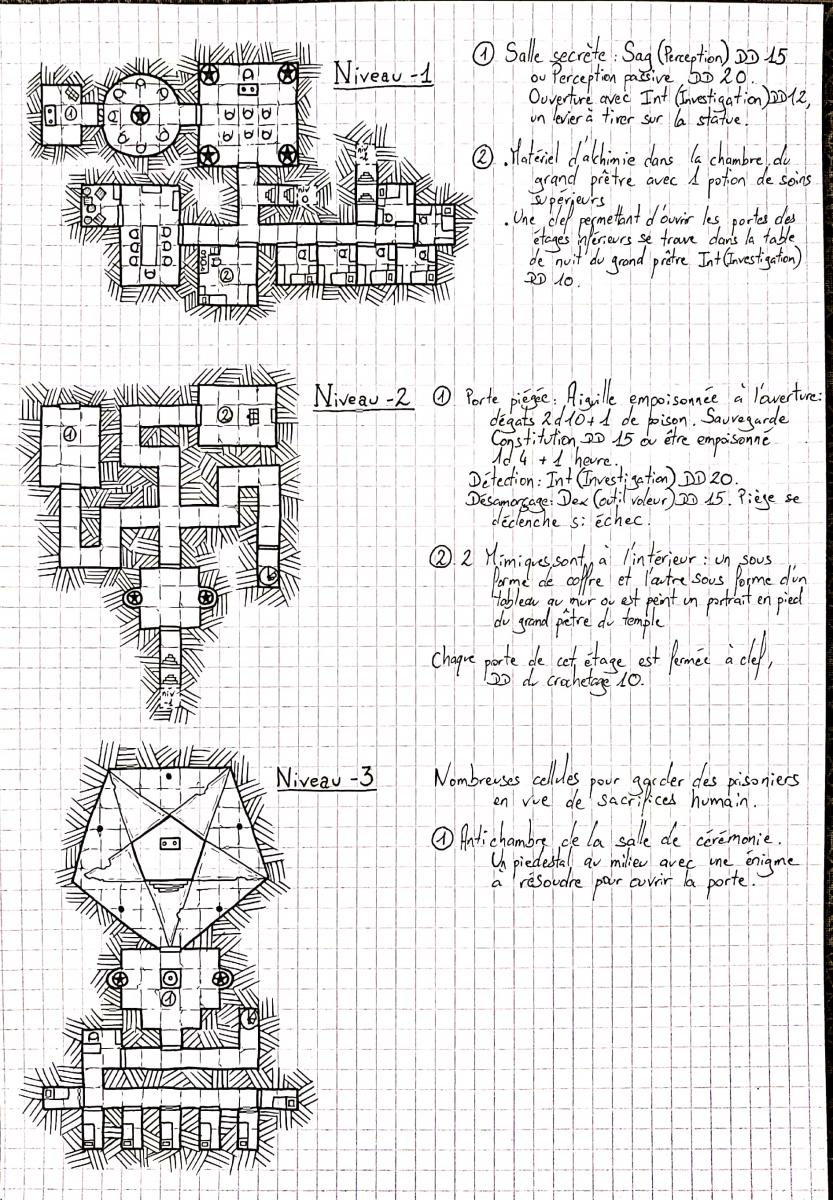 Niveau -1
① Salle secrète : Sag (Perception) DD 15
ou Perception passive DD 20.
Ouverture avec Int (Investigation) DD 12,
un levier à tirer sur la statue.
② . Matériel d'alchimie dans la chambre du
grand prêtre avec 1 potion de soins
supérieurs
. Une clef permettant d'ouvrir les portes des
étages inférieurs se trouve dans la table
de nuit du grand prêtre Int (Investigation)
DD 10.
1
2
niv
-2
Niveau -2
① Porte piégée : Aiguille empoisonnée à l'ouverture :
dégats 2d10+1 de poison. Sauvegarde
Constitution DD 15 ou être empoisonné
1d4 + 1 heure.
Détection : Int (Investigation) DD 20.
Désamorçage : Dex (outil voleur) DD 15. Piège se
déclenche si échec.
② 2 Mimiques sont à l'intérieur : un sous
forme de coffre et l'autre sous forme d'un
tableau au mur ou est peint un portrait en pied
du grand pêtre du temple
Chaque porte de cet étage est fermée à clef,
DD du crochetage 10.
1
2
niv
-1
Niveau -3
Nombreuses cellules pour garder des prisoniers
en vue de sacrifices humain.
① Antichambre de la salle de cérémonie.
Un piedestal au milieu avec une énigme
à résoudre pour ouvrir la porte.
1